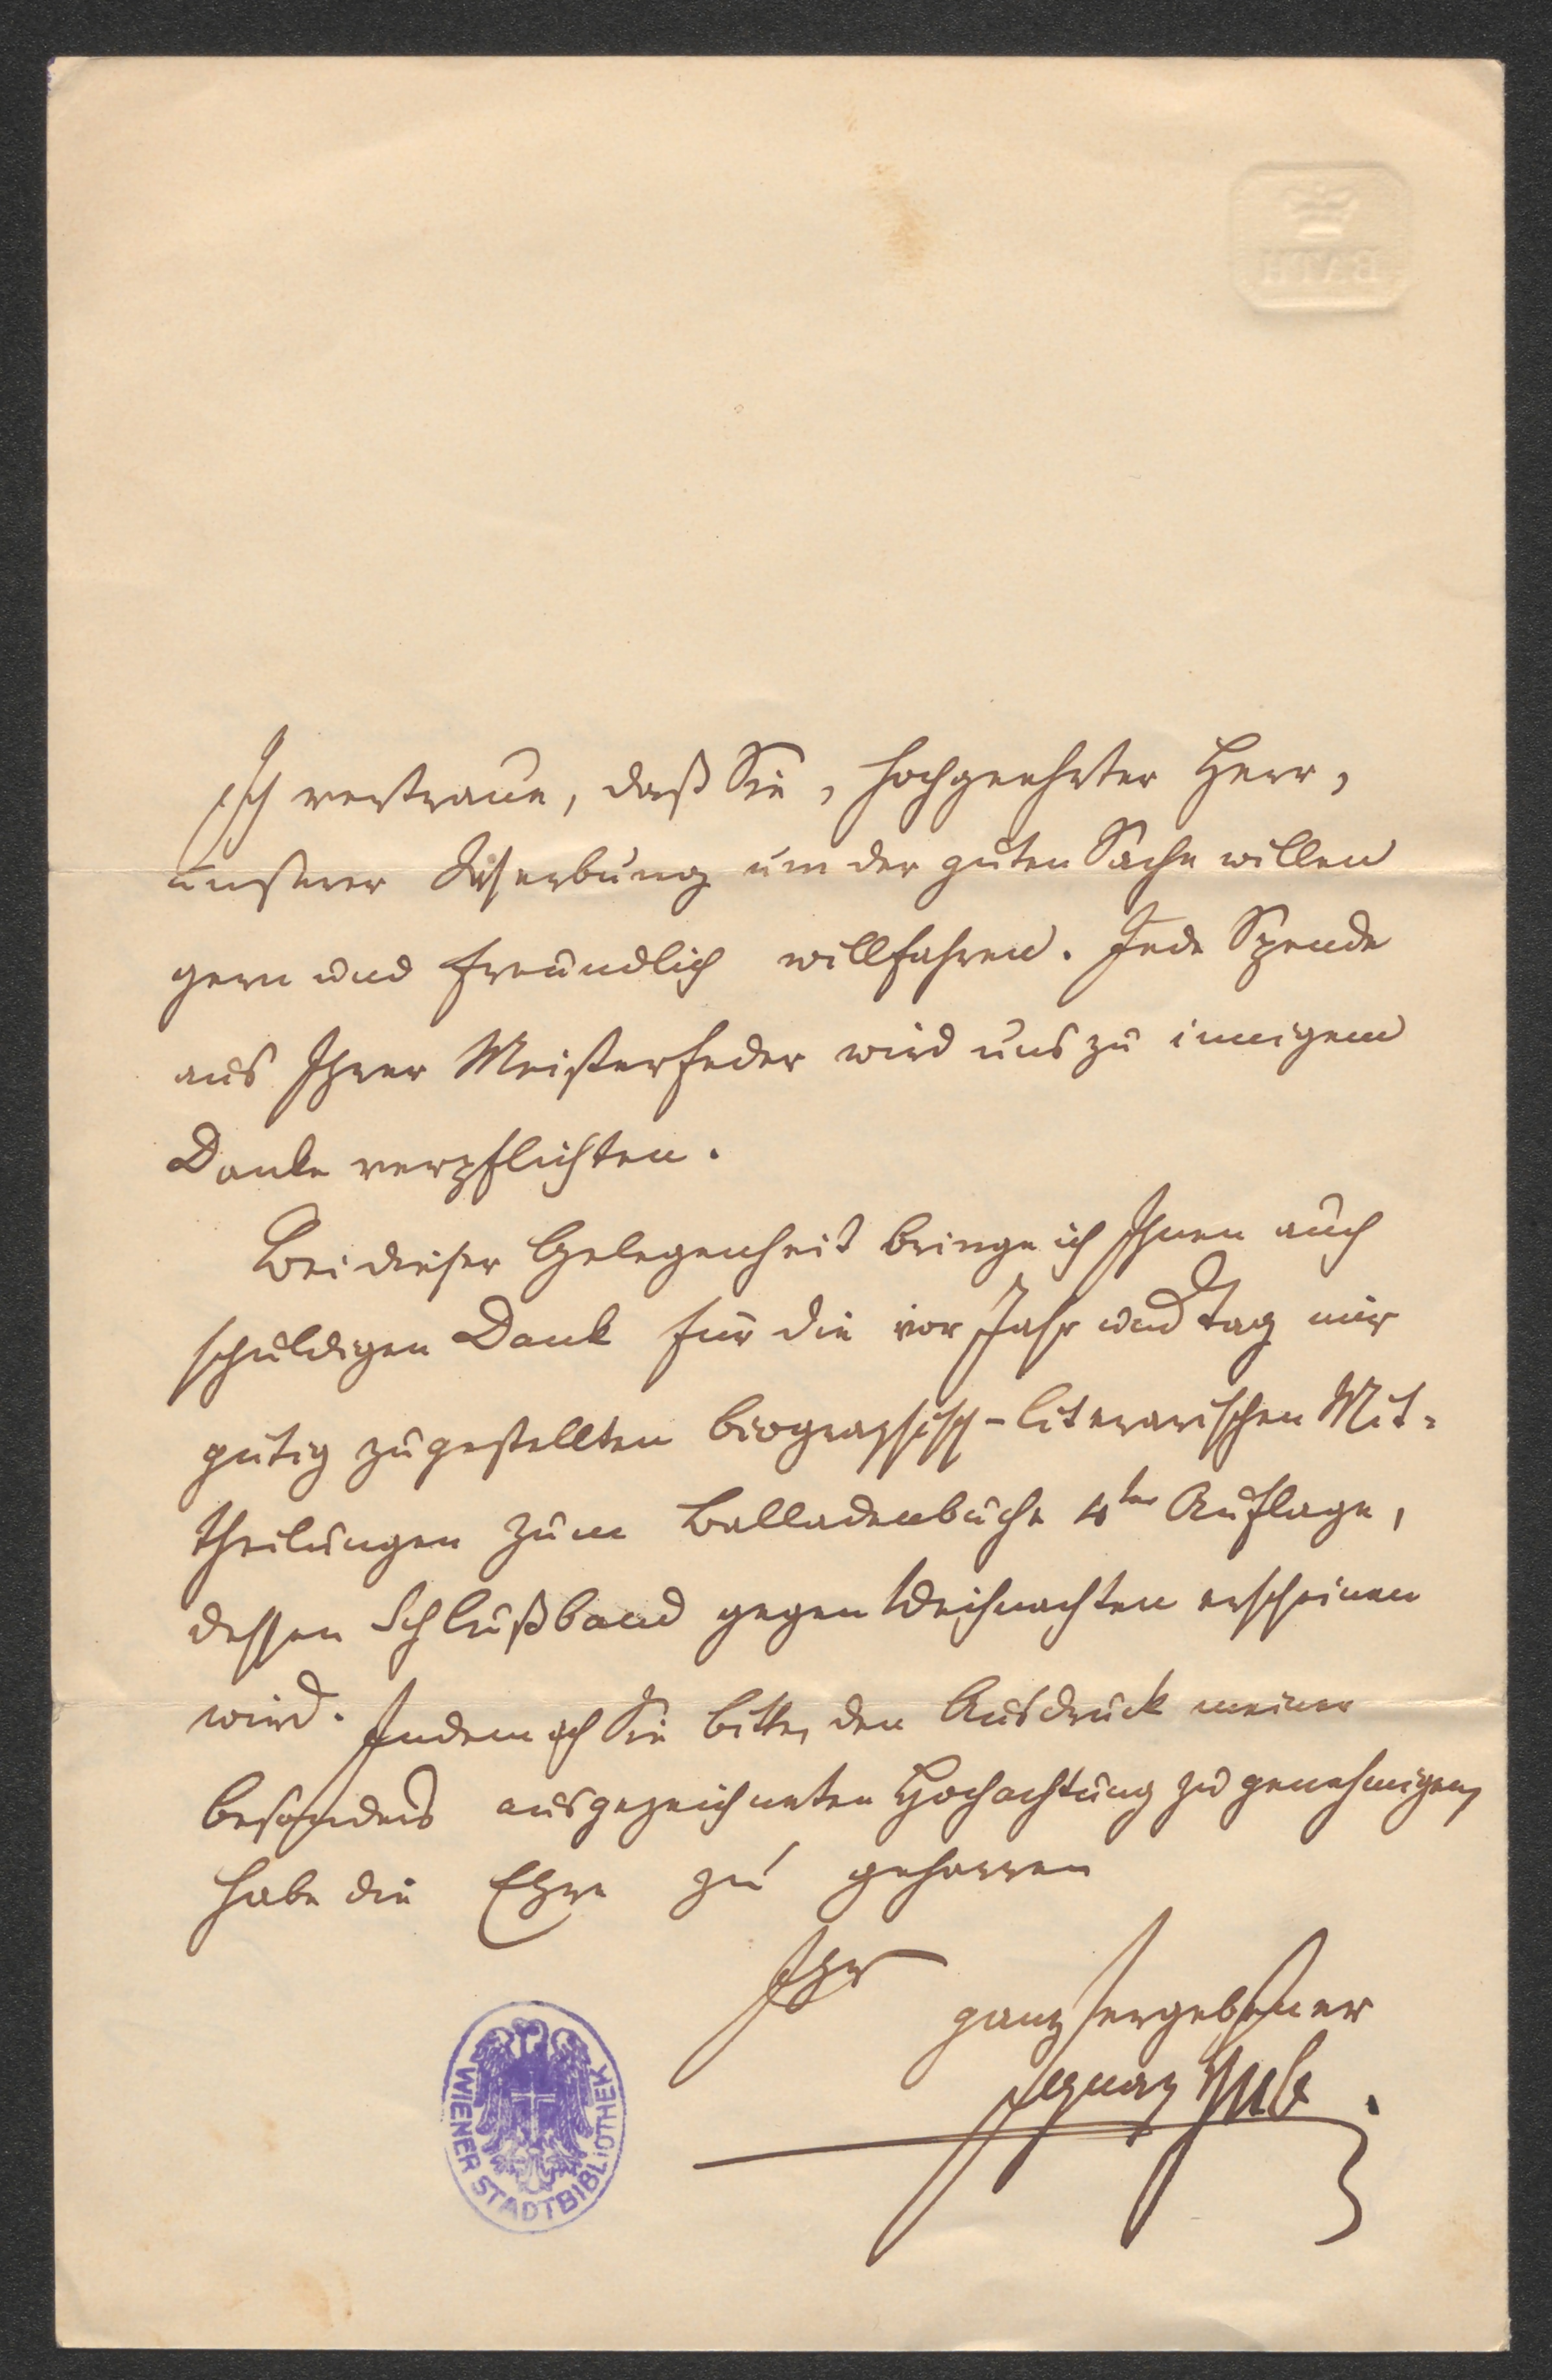 BATH
Ich vertraue, daß Sie, hochgeehrter Herr,
unserer Bewerbung um der guten Sache willen
gern und freundlich willfahren. Jede Spende
aus Ihrer Meisterfeder wird uns zu innigem
Danke verpflichten.
Bei dieser Gelegenheit bringe ich Ihnen auch
schuldigen Dank für die vor Jahr und Tag mir
gütig zugestellten biographisch-literarischen Mit-
theilungen zum Balladenbuche 4ter Auflage,
dessen Schlußband gegen Weihnachten erscheinen
wird. Indem ich Sie bitte, den Ausdruck meiner
besonders ausgezeichneten Hochachtung zu genehmigen,
habe die Ehre zu geharren
Ihr
ganz ergebener
Ignaz Hub.
WIENER STADTBIBLIOTHEK